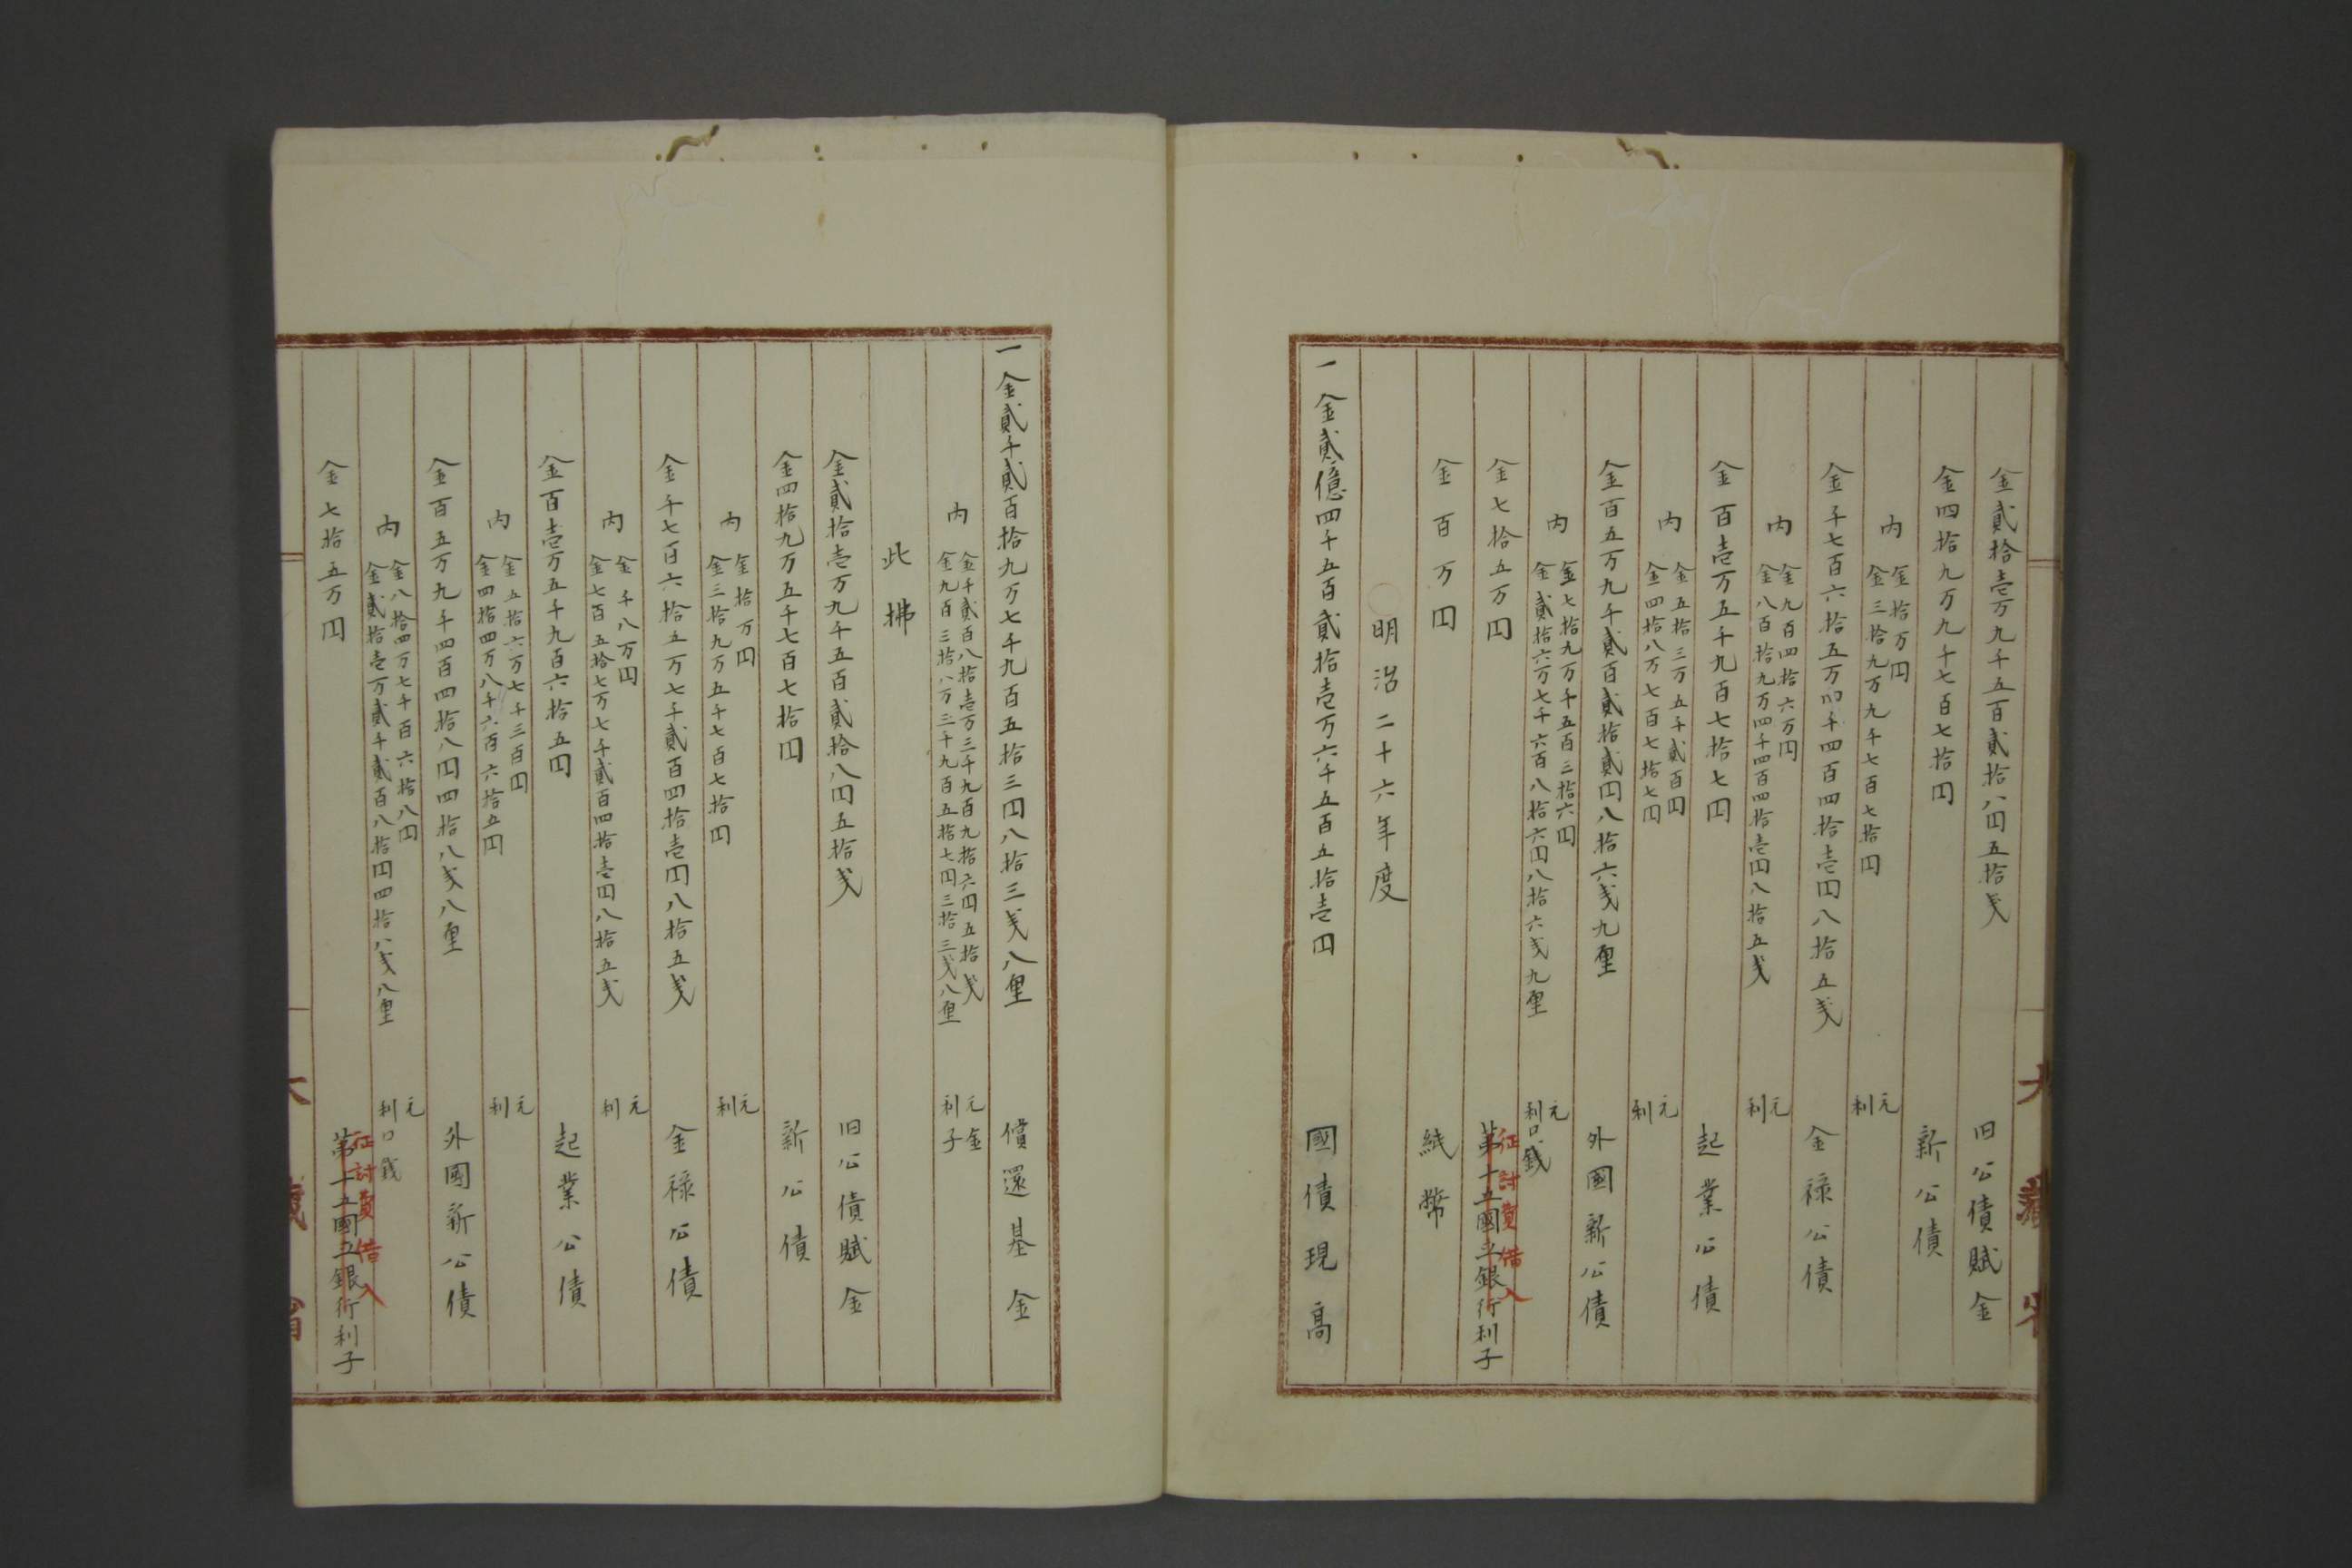 金貳拾壱万九千五百貳拾八円五拾戔 旧公債賦金
金四拾九万九千七百七拾円 新公債
内 金拾万円 元
金三拾九万九千七百七拾円 利
金千七百六拾五万四千四百四拾壱円八拾五戔 金禄公債
内 金九百四拾六万円 元
金八百拾九万四千四百四拾壱円八拾五戔 利
金百壱万五千九百七拾七円 起業公債
内 金五拾三万五千貳百円 元
金四拾八万七百七拾七円 利
金百五万九千貳百貳拾貳円八拾六戔九厘 外國新公債
内 金七拾九万千五百三拾六円 元
金貳拾六万七千六百八拾六円八拾六戔九厘 利口銭
金七拾五万円 第十五國立銀行利子
征討費借入
金百万円 紙幣
明治二十六年度
一金貳億四千五百貳拾壱万六千五百五拾壱円 國債現高
大藏省
一金貳千貳百拾九万七千九百五拾三円八拾三戔八厘 償還基金
内 金千貳百八拾壱万三千九百九拾六円五拾戔 元金
金九百三拾八万三千九百五拾七円三拾三戔八厘 利子
此拂
金貳拾壱万九千五百貳拾八円五拾戔 旧公債賦金
金四拾九万五千七百七拾円 新公債
内 金拾万円 元
金三拾九万五千七百七拾円 利
金千七百六拾五万七千貳百四拾壱円八拾五戔 金禄公債
内 金千八万円 元
金七百五拾七万七千貳百四拾壱円八拾五戔 利
金百壱万五千九百六拾五円 起業公債
内 金五拾六万七千三百円 元
金四拾四万八千六百六拾五円 利
金百五万九千四百四拾八円四拾八戔八厘 外國新公債
内 金八拾四万七千百六拾八円 元
金貳拾壱万貳千貳百八拾円四拾八戔八厘 利口銭
金七拾五万円 第十五國立銀行利子
征討費借入
大藏省